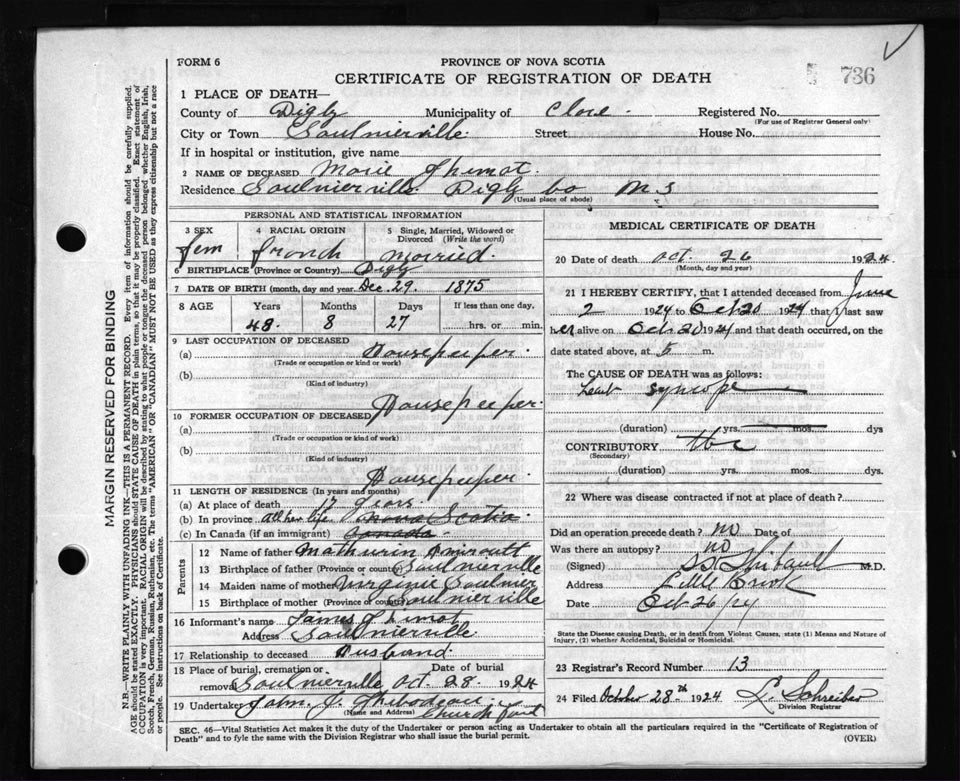 FORM 6
PROVINCE OF NOVA SCOTIA
CERTIFICATE OF REGISTRATION OF DEATH
736
1 PLACE OF DEATH—
County of Digby Municipality of Clare Registered No.
(For use of Registrar General only)
City or Town Saulnierville Street House No.
If in hospital or institution, give name
2 NAME OF DECEASED Marie Thimot
Residence Saulnierville Digby Co N.S
(Usual place of abode)
PERSONAL AND STATISTICAL INFORMATION
3 SEX 4 RACIAL ORIGIN 5 Single, Married, Widowed or Divorced (Write the word)
fem french married.
6 BIRTHPLACE (Province or Country) Digby
7 DATE OF BIRTH (month, day and year) Dec. 29. 1875
8 AGE Years Months Days If less than one day,
48. 8 27 hrs. or min.
9 LAST OCCUPATION OF DECEASED
(a) Housekeeper.
(Trade or occupation or kind of work)
(b)
(Kind of industry)
10 FORMER OCCUPATION OF DECEASED Housekeeper.
(a)
(Trade or occupation or kind of work)
(b)
(Kind of industry)
Housekeeper
11 LENGTH OF RESIDENCE (In years and months)
(a) At place of death 17 years
(b) In province All her life Nova Scotia
(c) In Canada (if an immigrant) Canada
Parents
12 Name of father Mathurin Amirault
13 Birthplace of father (Province or country) Saulnierville
14 Maiden name of mother Virginie Saulnier
15 Birthplace of mother (Province or country) Saulnierville
16 Informant's name James Thimot
Address Saulnierville
17 Relationship to deceased Husband.
18 Place of burial, cremation or removal Saulnierville Date of burial Oct. 28. 1924
19 Undertaker John J.
(Name and Address) Church Point
MEDICAL CERTIFICATE OF DEATH
20 Date of death Oct. 26 1924.
(Month, day and year)
21 I HEREBY CERTIFY, that I attended deceased from June
2 1924 to Oct 20 1924 that I last saw
her alive on Oct 20 1924 and that death occurred, on the
date stated above, at 5 m.
The CAUSE OF DEATH was as follows:
heart syncope
(duration) yrs. mos. dys
CONTRIBUTORY tbc
(Secondary)
(duration) yrs. mos. dys.
22 Where was disease contracted if not at place of death?
Did an operation precede death? no Date of
Was there an autopsy? no
(Signed) Thibault M.D.
Address Little Brook
Date Oct 26/24
State the Disease causing Death, or in death from Violent Causes, state (1) Means and Nature of Injury, (2) whether Accidental, Suicidal or Homicidal.
23 Registrar's Record Number 13
24 Filed October 28th 1924 L. Schreiber
Division Registrar
SEC. 46—Vital Statistics Act makes it the duty of the Undertaker or person acting as Undertaker to obtain all the particulars required in the "Certificate of Registration of
Death" and to fyle the same with the Division Registrar who shall issue the burial permit.
(OVER)
MARGIN RESERVED FOR BINDING
N.B.—WRITE PLAINLY WITH UNFADING INK—THIS IS A PERMANENT RECORD. Every item of information should be carefully supplied.
AGE should be stated EXACTLY. PHYSICIANS should STATE CAUSE OF DEATH in plain terms, so that it may be properly classified. Exact statement of
OCCUPATION is very important. RACIAL ORIGIN will be described by stating to what people or tongue the deceased person belonged whether English, Irish,
Scotch, French, German, Russian, Ruthenian, etc. The terms "AMERICAN" or "CANADIAN" MUST NOT BE USED as they express citizenship but not a race
or people. See instructions on back of Certificate.